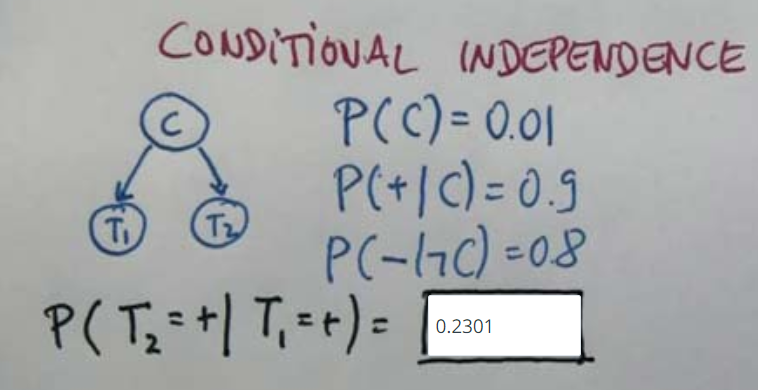 CONDITIONAL INDEPENDENCE
C
P(C) = 0.01
P(+|C) = 0.9
T₁ T₂
P(-|¬C) = 0.8
P(T₂=+|T₁=+) = 0.2301